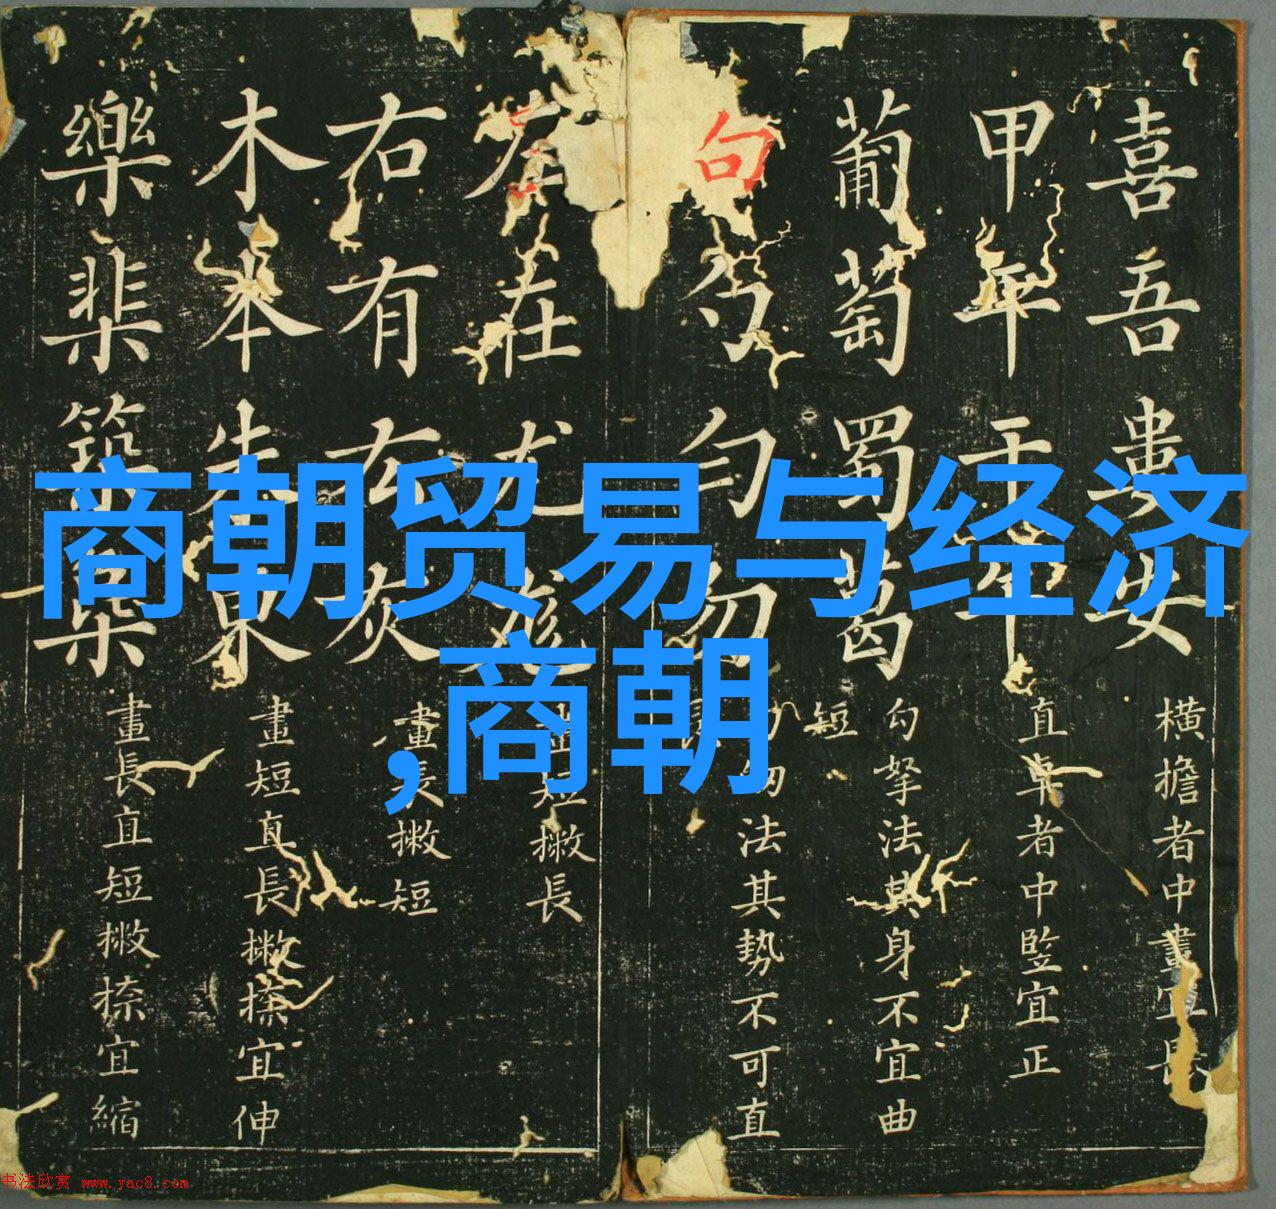 商朝贸易与经济
,商朝
喜吾安
横擔者中畫宜長
甲年干午
直卓者中竪宜正
葡萄蜀葛
勾拏法其身不宜曲
短
句勺勻勿
法其勢不可直
左在尤尨
畫短撇長
右有厷灰
畫長撇短
木本朱東
畫短直長撇捺宜伸
樂棐築
畫長直短撇捺宜縮
书法欣赏 www.yac8.com